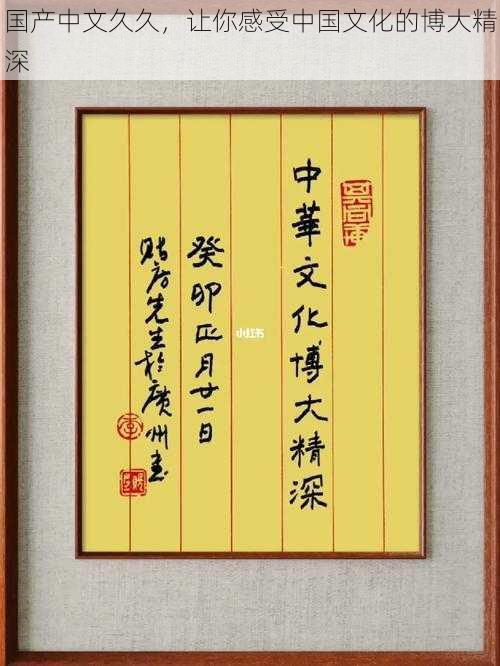 国产中文久久，让你感受中国文化的博大精
深
中華文化博大精深
癸卯正月廿一日
先生於廣州書
小红书